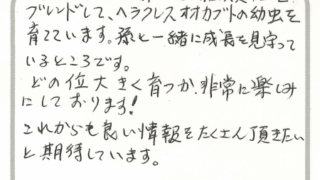 ブレンドして、ヘラクレスオオカブトの幼虫を
育てています。孫と一緒に成長を見守って
いるところです。
どの位大きく育つか、非常に楽しみ
にしております!
これからも良い情報をたくさん頂きたい
と期待しています。